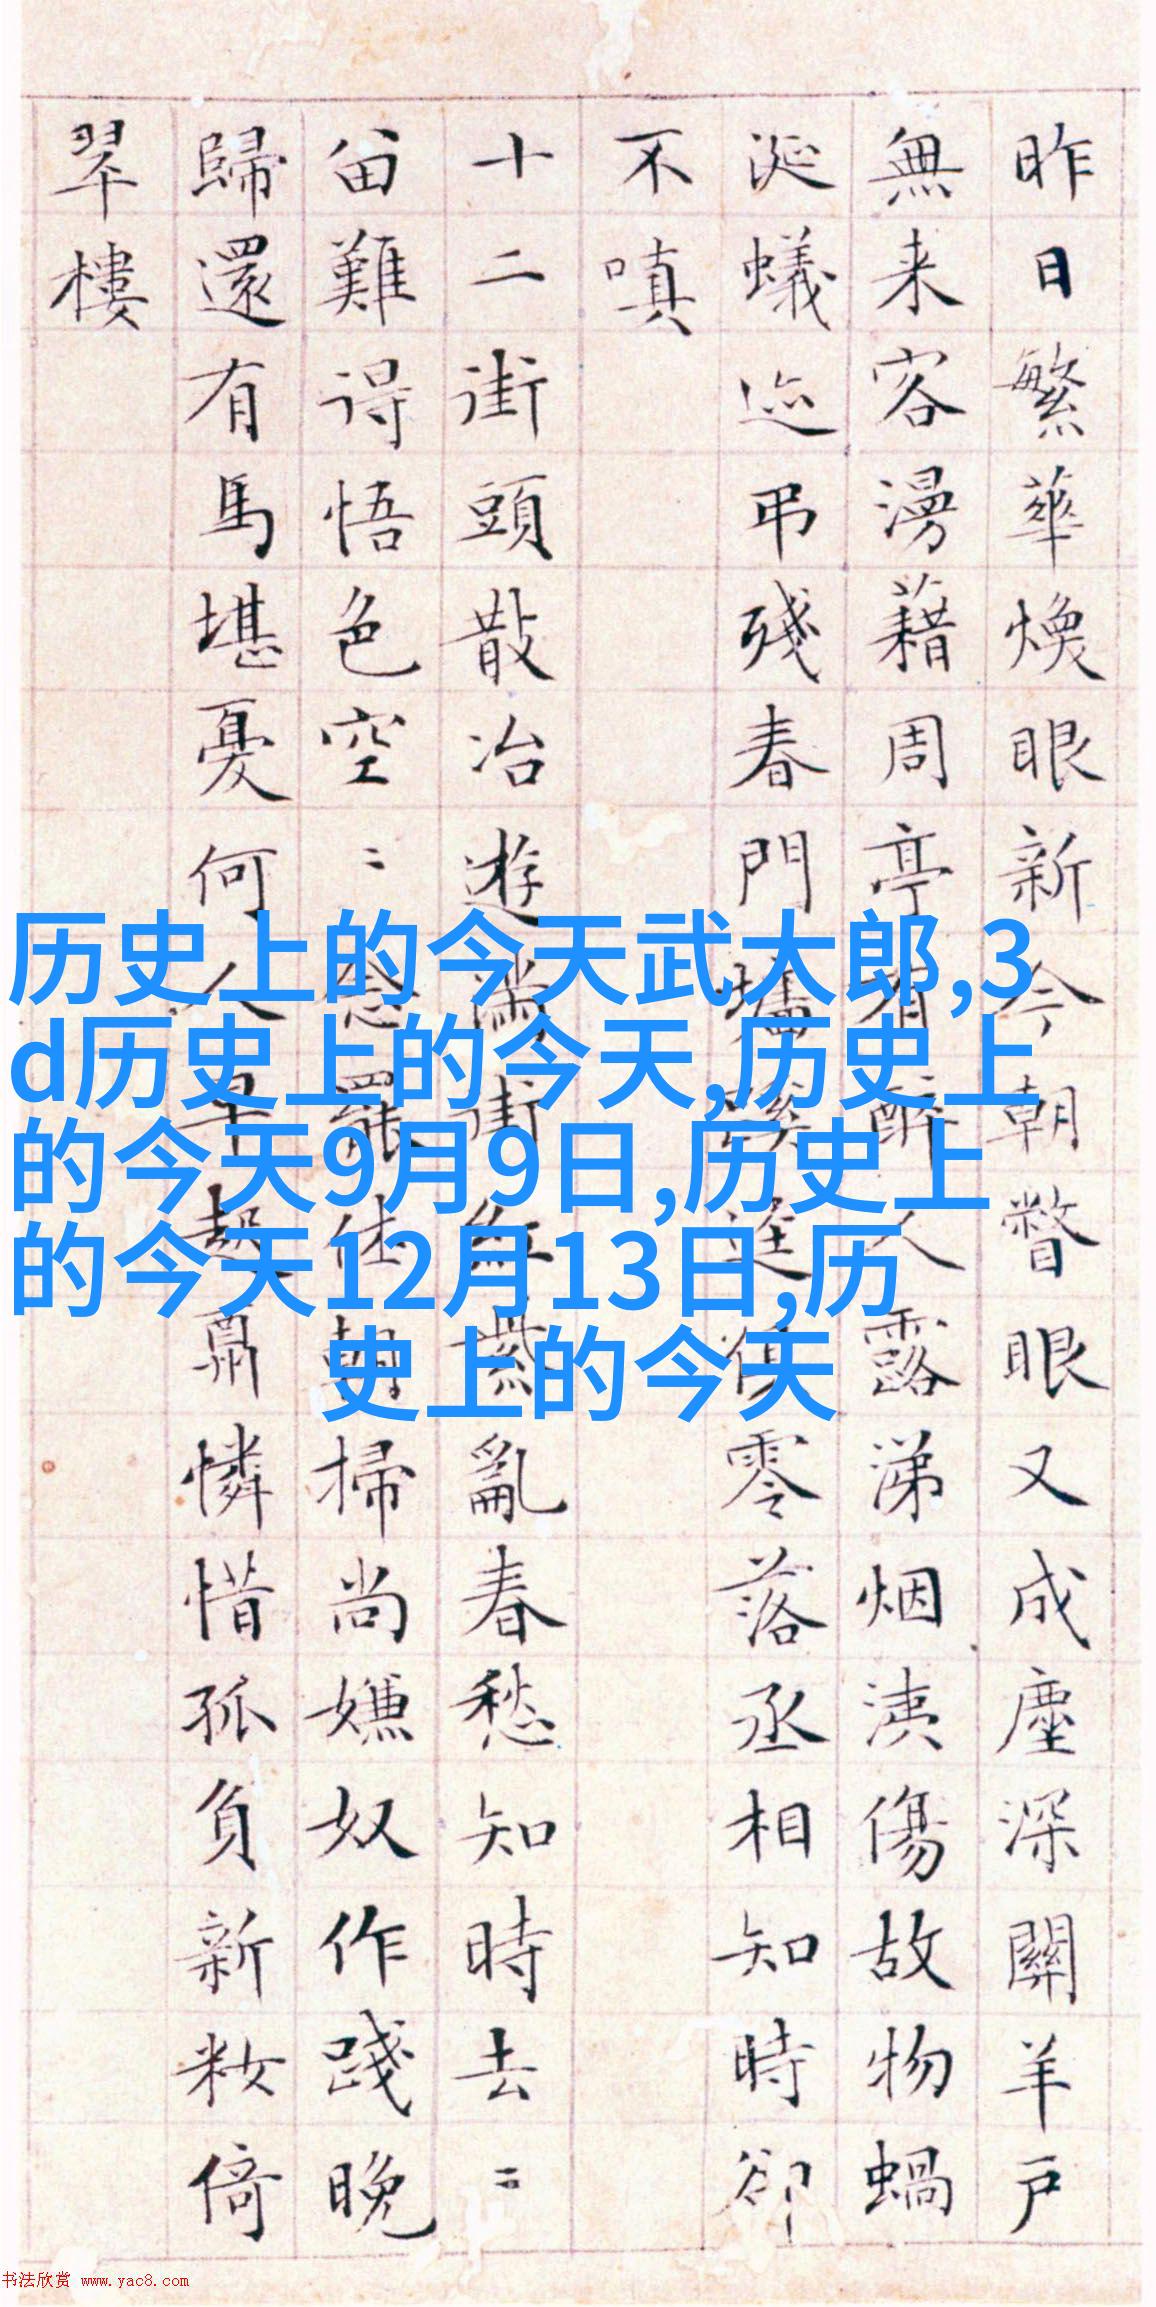 昨日繁華煥眼新今朝瞥眼又成塵深關羊戶
無来客漫藉周亭有醉人露涕烟洟傷故物蝸
涎蟻迹弔殘春門墻蹊逕俱零落丞相知時卻
不嗔
十二街頭散冶遊滿街紅紫亂春愁知時去〻
留難得悟色空〻念罷休朝掃尚嫌奴作踐晚
歸還有馬堪憂何人早起肩憐惜孤負新妝倚
翠樓
历史上的今天武大郎,3
d历史上的今天,历史上
的今天9月9日,历史上
的今天12月13日,历
史上的今天
书法欣赏 www.yac8.com